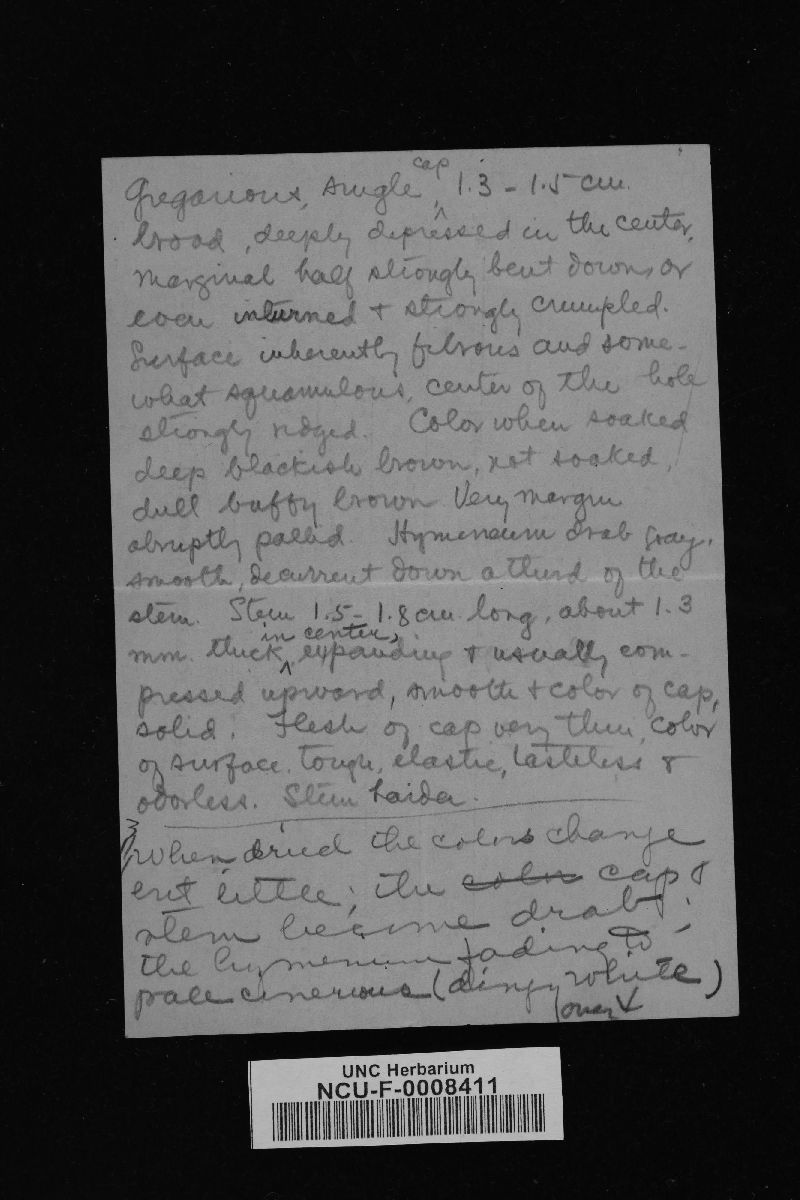 Gregarious, single ^cap 1.3 – 1.5 cm.
broad, deeply depressed in the center,
marginal half strongly bent down, or
even inturned + strongly crumpled.
Surface inherently fibrous and some-
what squamulous, center of the hole
strongly ridged. Color when soaked
deep blackish brown, not soaked,
dull buffy brown. Very margin
abruptly pallid. Hymeneum drab gray,
smooth, decurrent down a third of the
stem. Stem 1.5 – 1.8 cm long, about 1.3
mm. thick ^in center, expanding + usually com-
pressed upward, smooth + color of cap,
solid. Flesh of cap very thin, color
of surface. tough, elastic, tasteless +
odorless. Stem
When dried the colors change
but little; the color cap &
stem become drab;
the hymenium fading to
pale cinerious (dingy white)
(over
UNC Herbarium
NCU-F-0008411